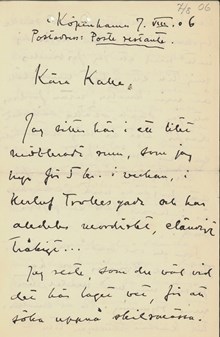 7/8 06
Köpenhamn 7. VIII. 06
Postadress: Poste restante.
Kära Kalle,
Jag sitter här i ett litet
möbleradt rum, som jag
hyr för 5 kr. i veckan, i
Herluf Trolles gade och har
alldeles mordiskt, eländigt
tråkigt...
Jag reste, som du väl vid
det här laget vet, för att
söka uppnå skilsmässa.